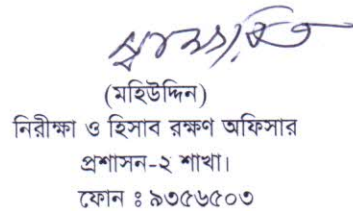 (মহিউদ্দিন)
নিরীক্ষা ও হিসাব রক্ষণ অফিসার
প্রশাসন-২ শাখা।
ফোন ঃ ৯৩৫৬৫০৩